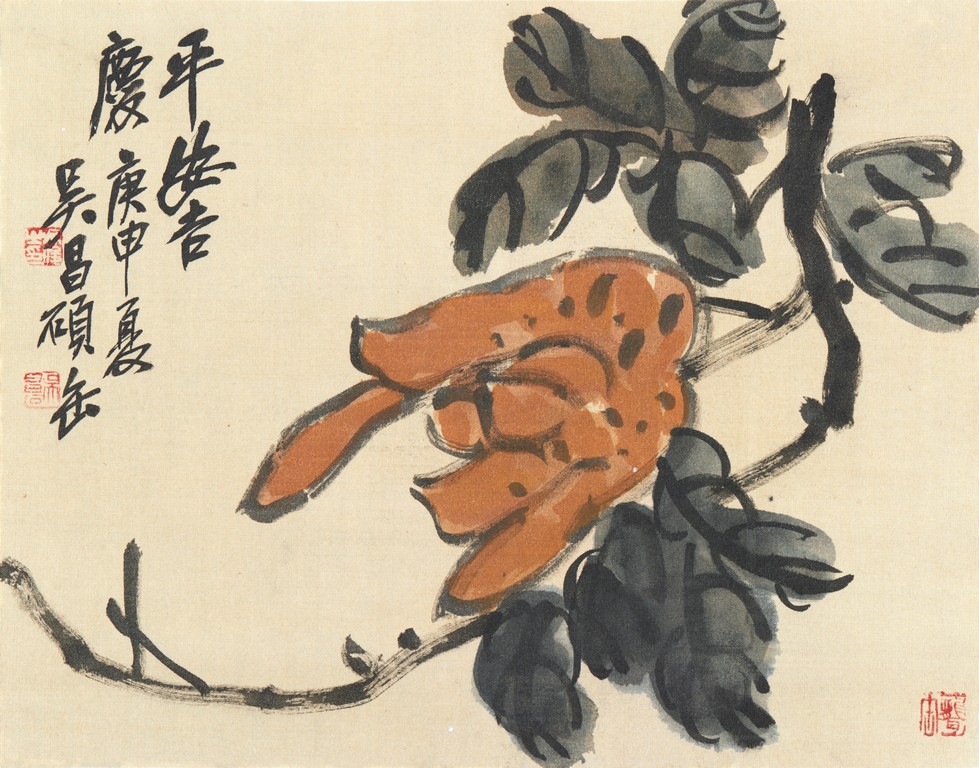 平安吉
慶庚申夏
吳昌碩缶